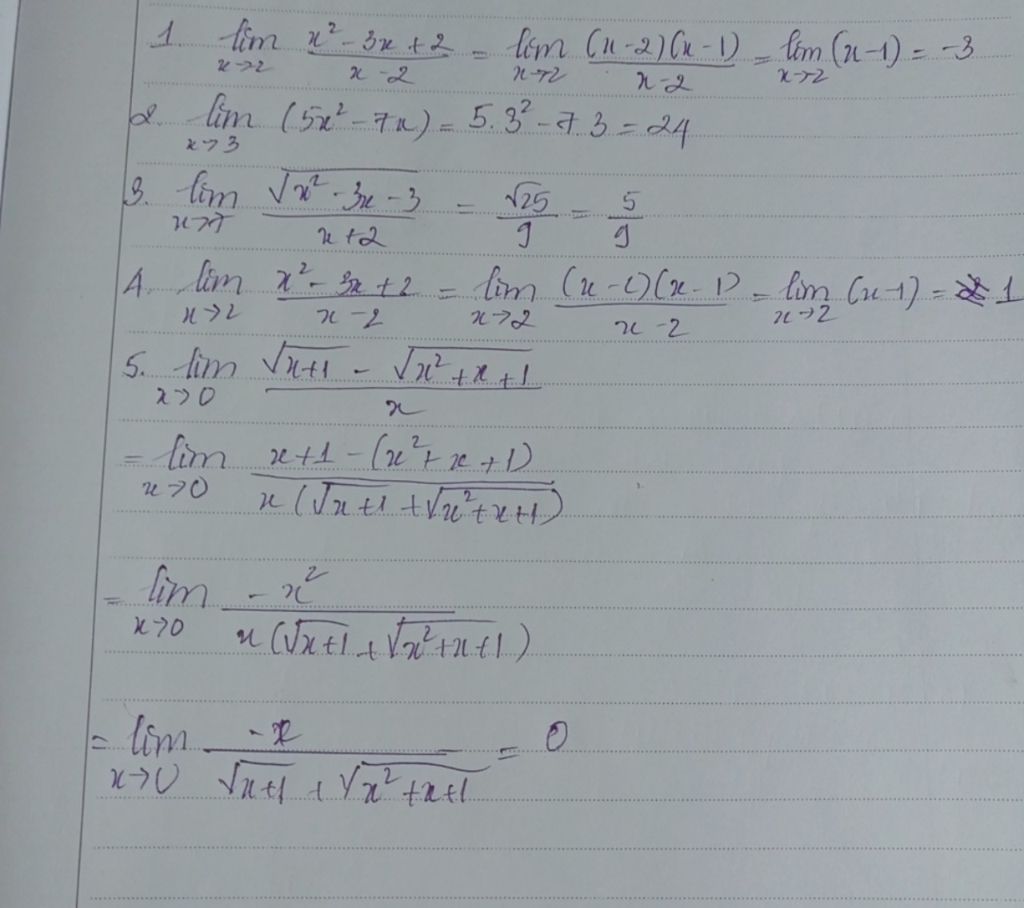 1. lim x→2 (x² - 3x + 2)/(x - 2) = lim x→2 ((x-2)(x-1))/(x-2) = lim x→2 (x-1) = -3
2. lim x→3 (5x² - 7x) = 5.3² - 7.3 = 24
3. lim x→7 √(x² - 3x - 3)/(x+2) = √25/9 = 5/9
4. lim x→2 (x² - 3x + 2)/(x - 2) = lim x→2 ((x-2)(x-1))/(x-2) = lim x→2 (x-1) = 1
5. lim x→0 (√(x+1) - √(x² + x + 1))/x
= lim x→0 (x+1 - (x² + x + 1))/(x(√(x+1) + √(x²+x+1)))
= lim x→0 (-x²)/(x(√(x+1) + √(x²+x+1)))
= lim x→0 (-x)/(√(x+1) + √(x²+x+1)) = 0